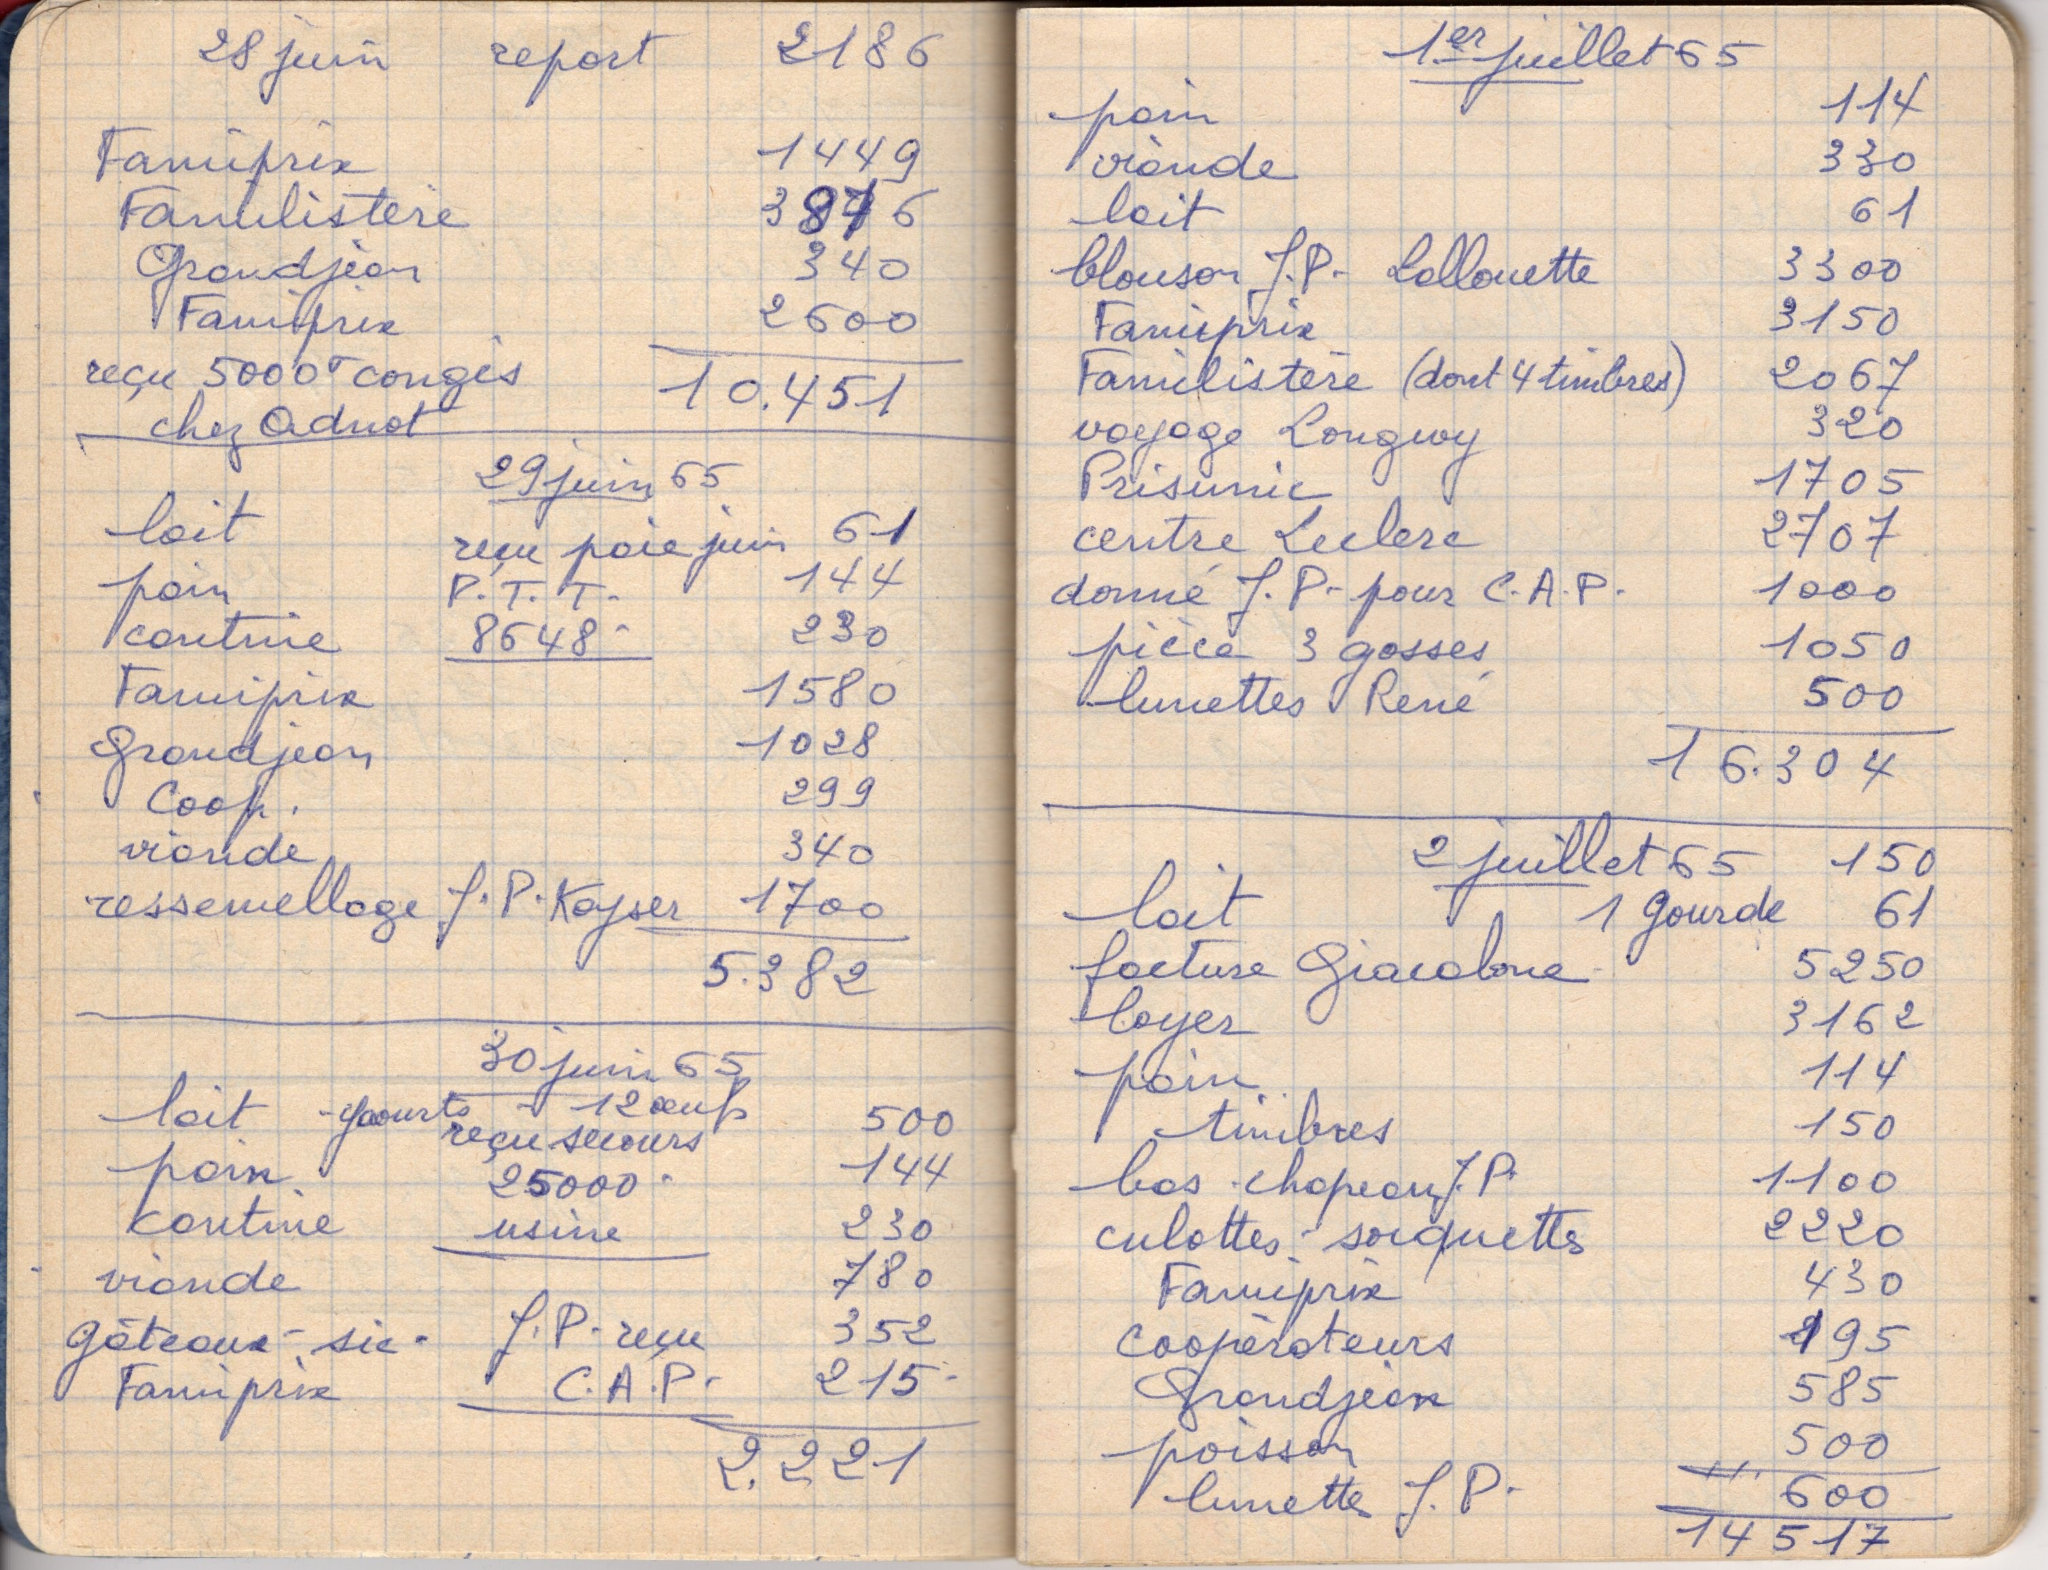 28 juin report 2186
Famiprix 1449
Familistère 3876
Grandjean 340
Famiprix 2600
reçu 5000F congés 10.451
chez Adnot
29 juin 65
lait 61
reçu paie juin
pain P.T.T. 144
cantine 8648 230
Famiprix 1580
Grandjean 1028
Coop. 299
viande 340
ressemellage J.P. Kayser 1700
5.382
30 juin 65
lait - yaourts - 12 œufs 500
reçu secours
pain 25000 144
cantine usine 230
viande 780
gâteaux - sic - J.P. reçu 352
Famiprix C.A.P. 215
2.221
1er juillet 65
pain 114
viande 330
lait 61
blouson J.P. Lallouette 3300
Famiprix 3150
Familistère (dont 4 timbres) 2067
voyage Longwy 320
Prisunic 1705
centre Leclerc 2707
donné J.P. pour C.A.P. 1000
pièce 3 gosses 1050
lunettes René 500
16.304
2 juillet 65 150
lait 1 gourde 61
facture Giacalone 5250
loyer 3162
pain 114
timbres 150
bas - chapeau J.P. 1100
culottes - soquettes 2220
Famiprix 430
Coopérateurs 195
Grandjean 585
poisson 500
lunettes J.P. 600
14517